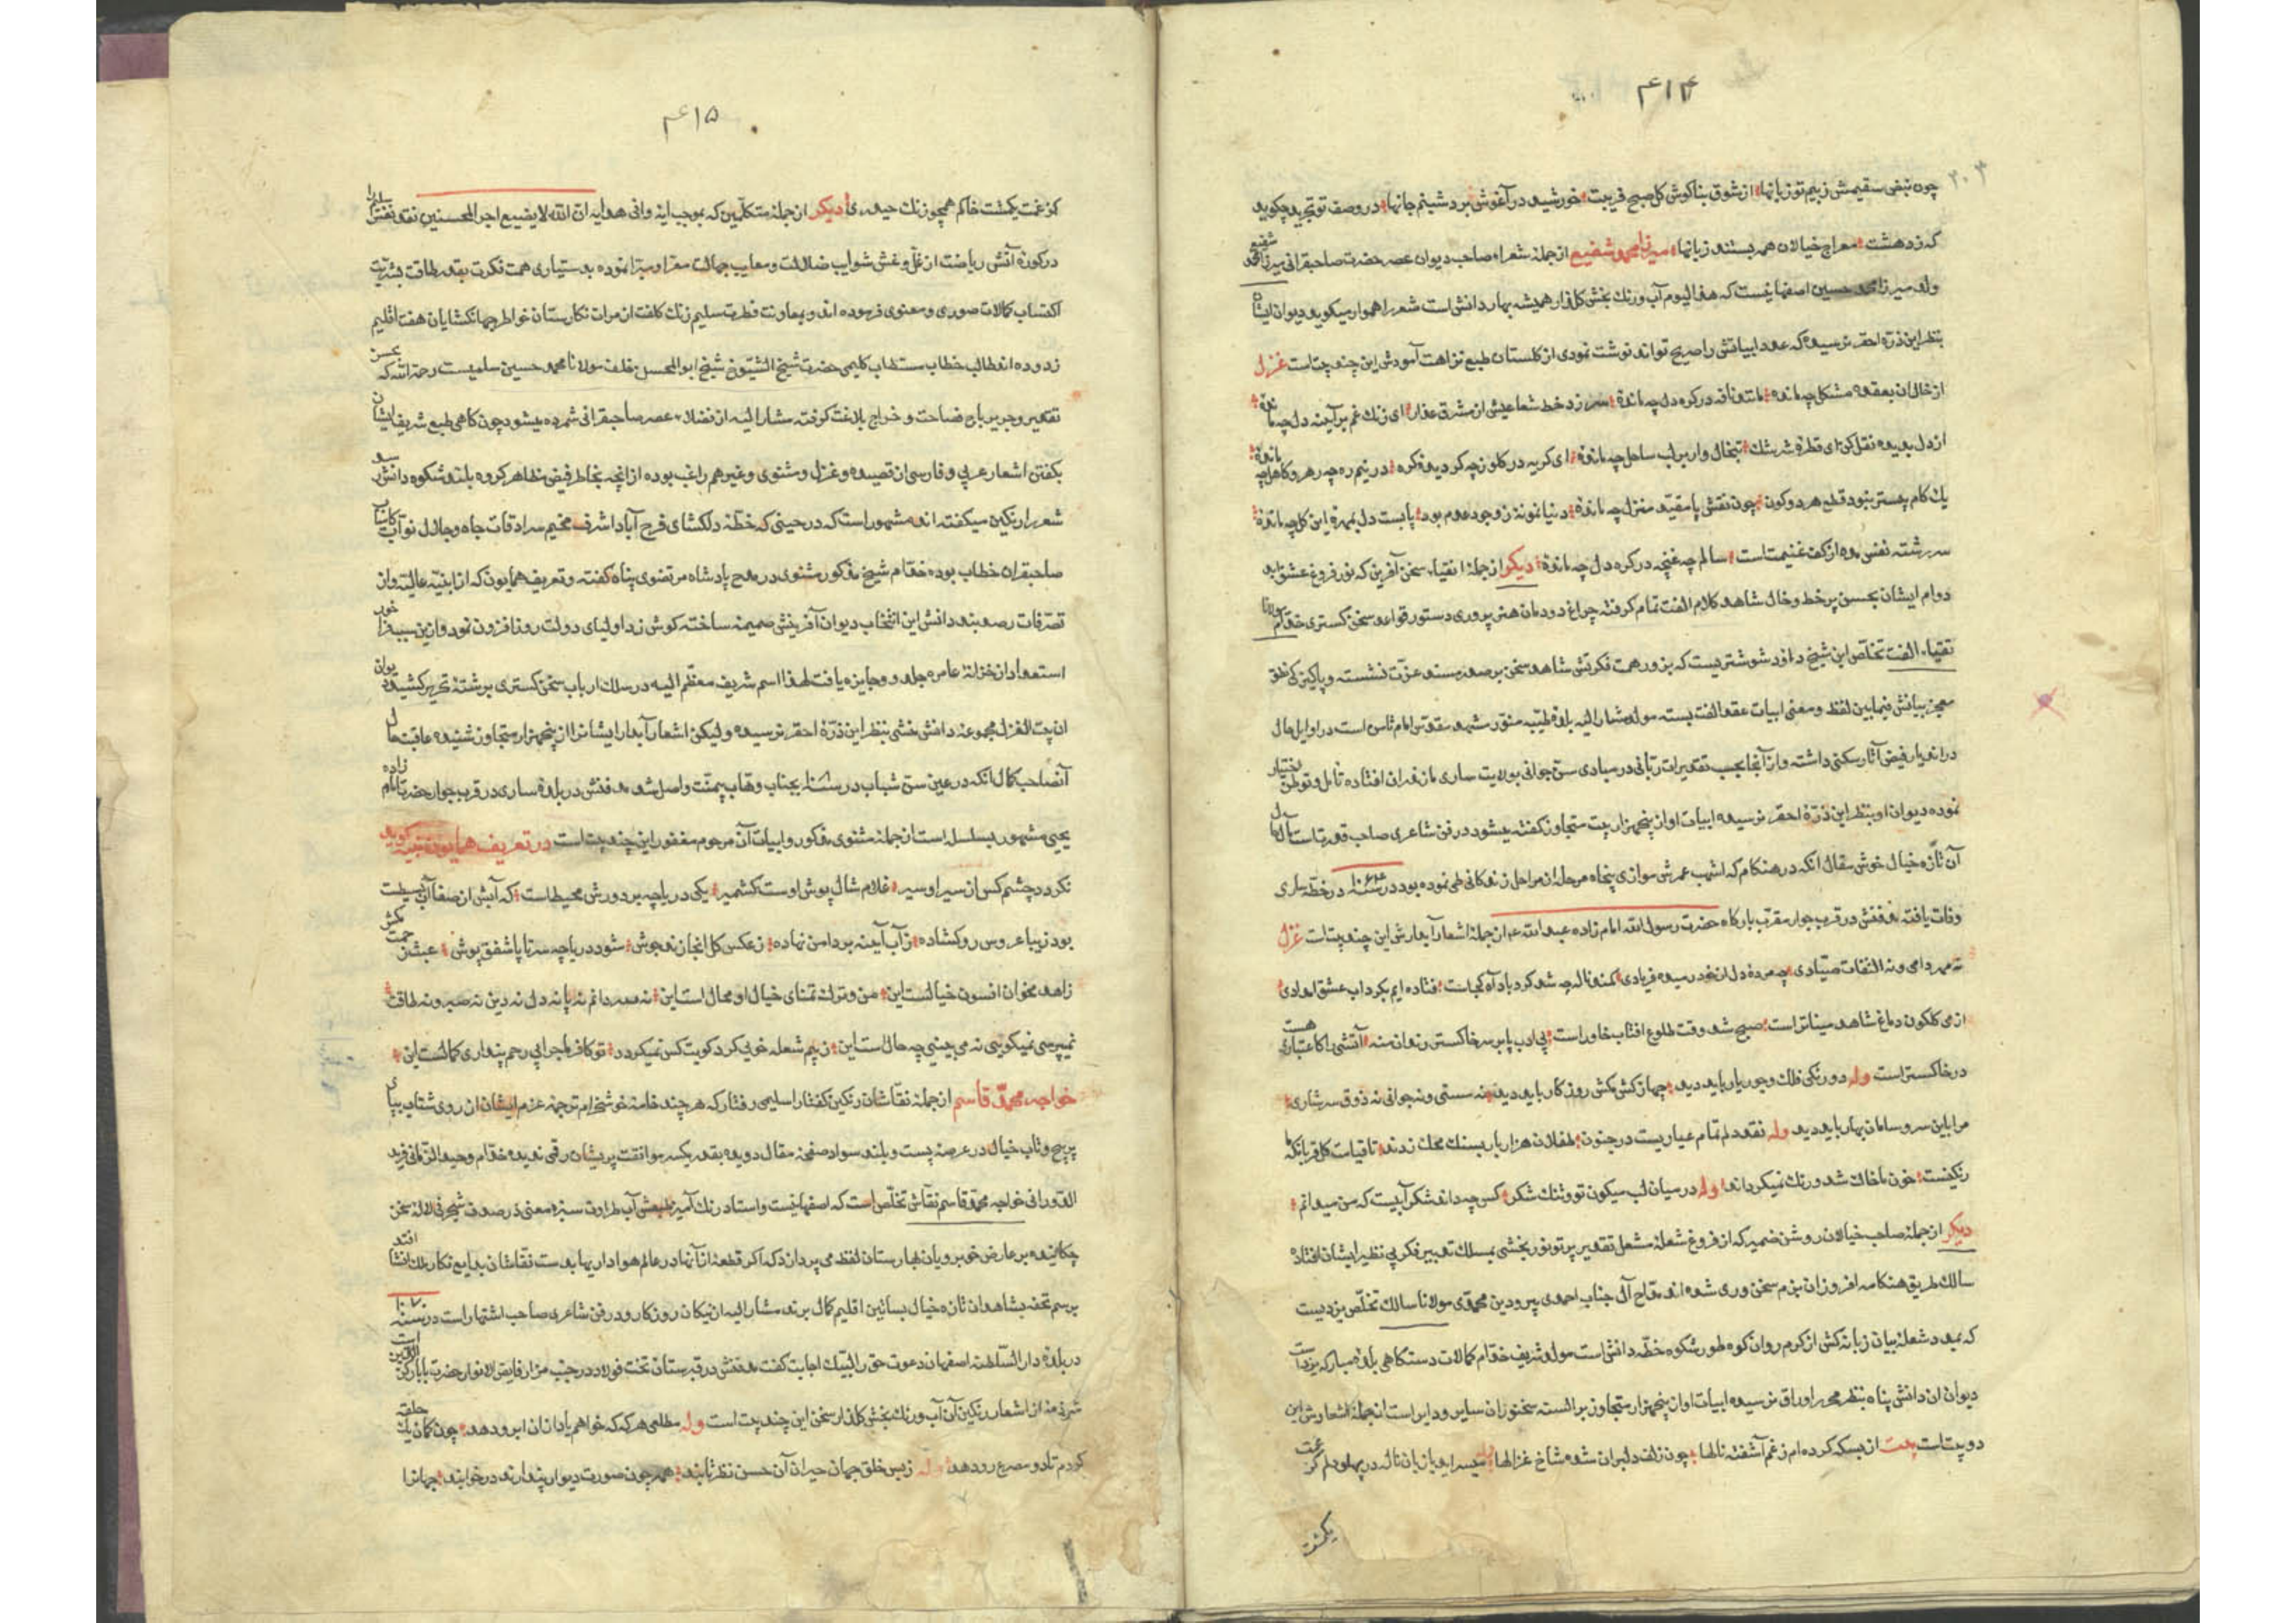 ۴۱۴
۲۰۳
چون نبض سقیمش زبیم تو زبانها از شوق بناکوش کل صبح فریبت خورشید در آغوش برد شبنم جانها در وصف تو تجرید چکوید
که زدهشت معراج خیالان همه بستند زبانها میرزا محمد شفیع از جمله شعراء صاحب دیوان عصر حضرت صاحبقرانی میرزا محمد شفیع
ولد میرزا محمد حسین اصفهانیست که هذا الیوم آب ورنك بخش کلزار همیشه بهار دانش است شعر را هموار میکوید دیوان ایشان
بنظر این ذره احقر نرسیده که عدد ابیاتش را صریح تواند نوشت نمودی از کلستان طبع نزاهت آمودش این چند بیت است غزل
از خال ان بعقده مشکل چه مانده مانند نافه در کره دل چه مانده سر زد خط شعاعیش از مشرق عذار ای زنك غم بر آینه دل چه مانده
از دل بدیده نقل کن ای قطره سرشك تبخال وار بر لب ساحل چه مانده ای کریه در کلو زچه کردیده کره در نیم ره چه رهرو کاهل چه مانده
یك کام بیستر نبود قطع هر دو کون چون نقش پا مقید منزل چه مانده دنیا نمونه ز وجود عدم بود پابست دل بمهره این کل چه مانده
سر رشته نفس مده از کف غنیمت است سالم چه غنچه در کره دل چه مانده دیکر از جمله اتقیاء سخن آفرین که نور فروغ عشق ابد
دوام ایشان بحسن بر خط وخال شاهد کلام الفت تمام کرفته چراغ دودمان هنر پروری دستور قواعد سخن کستری خدام مولانا
تقیاء الفت تخلص ابن شیخ داود شوشتریست که بزور همت فکرتش شاهد سخن بر صدر مسند عزت نشسته و پاکیزکی نطق
معجز بیانش فیمابین لفظ ومعنی ابیات عقد الفت بسته مولد مشار الیه بلده طیبه منور مشهد مقدس امام ثامن است در اوایل حال
در اندیار فیض آثار سکنی داشته واز آنجا بحسب تقدیرات ربانی در مبادی سن جوانی بولایت ساری مازندران افتاده تاهل وتوطن اختیار
نموده دیوان او بنظر این ذره احقر نرسیده ابیات او از پنجهزار بیت متجاوز کفته میشود در فن شاعری صاحب قدرتست مآل حال
آن تازه خیال خوش مقال انکه در هنکام که اشهب عمرش موازی پنجاه مرحله از مراحل زندکانی طی نموده بود در سنه ۱۰۶۳ در خطه ساری
وفات یافته مدفنش در قرب جوار مقرب بارکاه حضرت رسول الله امام زاده عبد الله ع از جمله اشعار آبدارش این چند بیت است غزل
نه مهر دامی ونه التفات صیادی چه مرده دل ان خود رسیده فریادی کمند ناله چه شد کرد باد آه کجاست فتاده ایم بکرداب عشق امدادی
از می کلکون دماغ شاهد مینا تر است صبح شد وقت طلوع افتاب خاور است بی ادب پا بر سر خاکستر رندان منه آتشی را کاعتباری هست
در خاکستر است وله دورنکی فلك وجور یار باید دید چها ز کش مکش روزکار باید دید نه مستی ونه جوانی نه ذوق سرشاری
مرا باین سر وسامان بهار باید دید وله نقد دلم تمام عیاریست در جنون طفلان هزار بار بسنك محك زدند تا قیامت کل قربانکه ما
رنکینست خون ما خاك شد ورنك نمیکرداند وله در میان لب میکون تو وتنك شکر کس چه داند شکر آبیست که من میدانم
دیکر از جمله صاحب خیالان روشن ضمیر که از فروغ شعله مشعل تقدیر پرتو نور بخشی بمسلك تعبیر فکر بی نظیر ایشان افتاده
سالك طریق هنکامه افروزان بزم سخن وری شده اند مداح آل جناب احمدی پیرو دین محمدی مولانا سالك تخلص یزدیست
که بمدد شعله بیان زبانه کش از کرم روان کوه طور شکوه خطه دانش است مولد شریف خدام کمالات دستکاهی بلده مبارکه یزد است
دیوان ان دانش پناه بنظر محرر اوراق نرسیده ابیات او از پنجهزار متجاوز بر السنه سخنوران سایر ودایر است از جمله اشعارش این
دو بیت است بیت از بسکه کرده ام ز غم آشفته نالها چون زلف دلبران شده شاخ غزالها میسراید باز بان ناله در پهلو دلم کز غمت
یکمشت
۴۱۵
کز غمت یکمشت خاکم همچو زنك حیدری دیکر از جمله متکلمین که بموجب ایه وافی هدایه ان الله لا یضیع اجر المحسنین نقد نفش را
در کوزه آتش ریاضت از غل وغش شوایب ضلالت ومعایب جهالت معرا ومبرا نموده بدستیاری همت فکرت بقدر طاقت بشریت
اکتساب کمالات صوری ومعنوی فرموده اند وبمعاونت فطرت سلیم زنك کلفت از مرات نکارستان خواطر جهانکشایان هفت اقلیم
زدوده اند طالب خطاب مستطاب کلیمی حضرت شیخ الشیوخ شیخ ابو المحسن خلف مولانا محمد حسین سلمیست رحمة الله که
تقدیر وجریر باج فصاحت و خراج بلاغت کرفته مشار الیه از فضلاء عصر صاحبقرانی شمرده میشود چون کاهی طبع شریف ایشان
بکفتن اشعار عربی وفارسی از قصیده وغزل ومثنوی وغیر هم راغب بوده از انچه بخاطر فیض مظاهر کروه بلند شکوه دانش رسد
شعر را رنکین میکفته اند مشهور است که در حینی که خطه دلکشای فرح آباد اشرف مخیم سرادقات جاه وجلال نواب کامیاب
صاحبقران خطاب بوده خدام شیخ مذکور مثنوی در مدح پادشاه مرتضوی پناه کفته وتعریف همایون که از ابنیه عالیه وان
تصرفات رصد بند دانش این انتخاب دیوان آفرینش ضمیمه ساخته کوش زد اولیای دولت روز افزون نمود وازین سبب فراخور
استعداد از خزانه عامره جلدو وجایزه یافت لهذا اسم شریف معظم الیه در سلك ارباب سخن کستری بر رشته تحریر کشید دیوان
ان بیت الغزل مجموعه دانش منشی بنظر این ذره احقر نرسیده ولیکن اشعار آبدار ایشانرا از پنجهزار متجاوز شنیده عاقبت حال
آنصاحب کمال انکه در عین سن شباب در سنه بجناب وهاب بیمنت واصل شد مدفنش در بلده ساری در قرب جوار حضرت امام زاده
یحیی مشهور بسلسل است از جمله مثنوی مذکور وابیات آن مرحوم مغفور این چند بیت است در تعریف همایون تپه کوید
نکردد چشم کس از سیر او سیر غلام شال پوش اوست کشمیر یکی دریاچه بر دورش محیط است که آبش از صفا آب بسیطست
بود زیبا عروس رو کشاده ز آب آینه بر دامن نهاده ز عکس کل انجا زند جوش شود دریاچه سر تا پا شفق پوش عبث زحمت مکش
زاهد مخوان افسون خیالست این من وترك تمنای خیال او محال است این نه سر دانم نه پا نه دل نه دین نه صبر ونه طاقت
نمیپرسی نمیکویی نه می بینی چه حال است این ز بیم شعله خویی کرد کویت کس نمیکردد تو کافر ماجرایی رحم پنداری کمالست این
خواجه محمد قاسم از جمله نقاشان رنکین کفتار اسلیمی رفتار که هر چند خامه خوشخرام توجه عزم ایشان از روی شتاب بپای
پر پیچ وتاب خیال در عرصه پست وبلند سواد صفحه مقال دویده بقدر یکسر مو آفت پریشان رقمی ندیده خدام وحید الزمانی فرید
الدورانی خواجه محمد قاسم نقاش تخلص است که اصفهانیست واستاد رنك آمیز طبعش آب طراوت سبزه معنی در صدف شنجرفی لاله سخن
چکانیده بر عارض خوبرویان بهارستان لفظ می پردازد که اکر قطعه از آنها در عالم هوادار یها بدست نقاشان بدایع نکار بلك افتد
برسم تحفه بشاهدان تازه خیال بساتین اقلیم کمال برند مشار الیه از نیکان روزکار ودر فن شاعری صاحب اشتهار است در سنه ۱۰۷۰
در بلده دار السلطنه اصفهان دعوت حق را لبیك اجابت کفت مدفنش در قبرستان تخت فولاد در جنب مزار فایض الانوار حضرت بابا رکن الدین است
شرذمه از اشعار رنکین آن آب ورنك بخش کلزار سخن این چند بیت است وله مطلعی هر که که خواهم یاد ازان ابرو دهد چون کمان یك حلقه
کردم تا دو مصرع رو دهد وله زبس خلق جهان حیران آن حسن نظر تابند همه چون صورت دیوار پندارند در خوابند جهانرا